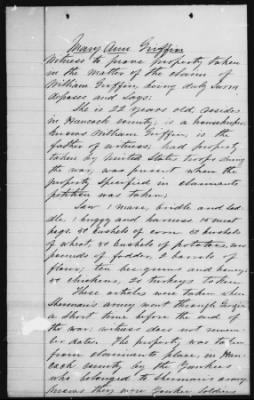 Mary Ann Griffin
Witness to prove property taken
in the matter of the claim of
William Griffin, being duly sworn
deposes and says:
She is 22 years old, resides
in Hancock county; is a housekeeper
knows William Griffin, is the
father of witness; had property
taken by United States troops during
the war; was present when the
property specified in claimants
petition was taken;
Saw 1 mare, bridle and sad
dle, 1 buggy and harness 15 meat
hogs. 50 bushels of corn 20 bushels
of wheat, bushels of potatoes,
pounds of fodder, 2 barrels of
flour; ten bee gums and honey;
chickens, 20 turkeys taken
These articles were taken when
Sherman's army went through Georgia
a short time before the end of
the war; witness does not remem
ber dates. The property was taken
from claimants place, in Han
cock county by the Yankees
who belonged to Sherman's army
knows they were Yankee soldiers